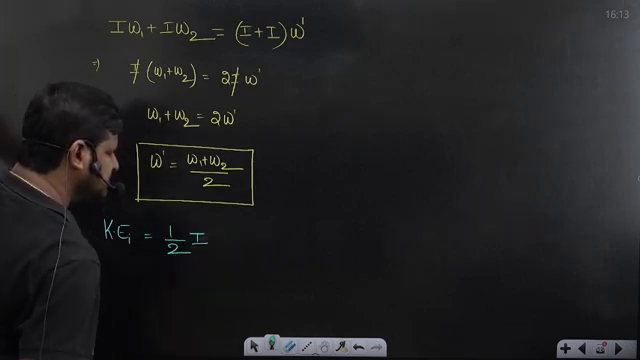 16:13
Iω₁ + Iω₂ = (I + I) ω'
⇒ I (ω₁+ω₂) = 2I ω'
ω₁ + ω₂ = 2ω'
ω' = (ω₁+ω₂)/2
K.Eᵢ = 1/2 I